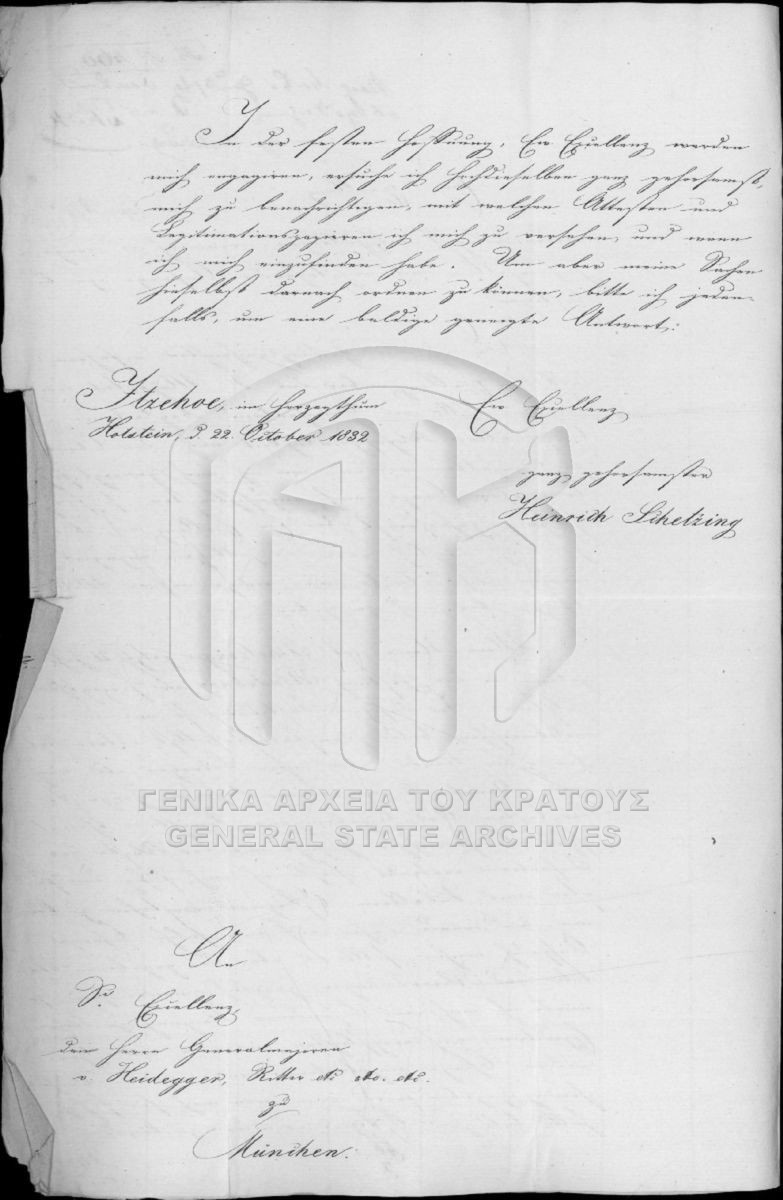 In der festen Hoffnung, Ew Excellenz werden
mich engagiren, ersuche ich Hochdieselben ganz gehorsamst,
mich zu benachrichtigen, mit welchen Attesten und
Legitimationspapieren ich mich zu versehen, und wann
ich mich einzufinden habe. Um aber meine Sachen
hieselbst darnach ordnen zu können, bitte ich jeden-
falls, um eine baldige geneigte Antwort.
Itzehoe, im Herzogthum
Holstein, d 22. October 1832
Ew Excellenz
ganz gehorsamster
Heinrich Schelzing
ΓΕΝΙΚΑ ΑΡΧΕΙΑ ΤΟΥ ΚΡΑΤΟΥΣ
GENERAL STATE ARCHIVES
An
Sr. Excellenz,
den Herrn Generalmajoren
v. Heidegger, Ritter etc etc. etc.
zu
München.